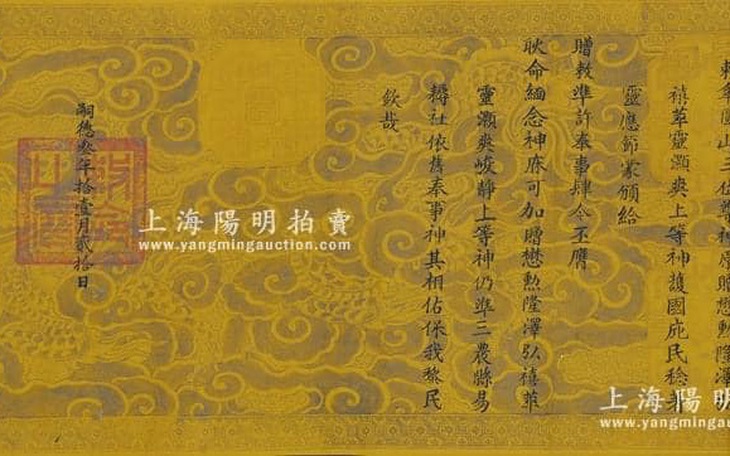 敕傘圓山三位尊神原贈懋勲隆澤弘
禧菲靈灝爽上等神護國庇民稔著
靈應節蒙頒給
贈敕準許奉事肆今丕膺
耿命緬念神庥可加贈懋勲隆澤弘禧菲
靈灝爽峻靜上等神仍準三農縣昜
耨社依舊奉事神其相佑保我黎民
欽哉
嗣德叁年拾壹月貳拾日
上海陽明拍賣
www.yangmingauction.com
上海陽明
www.yangmingau